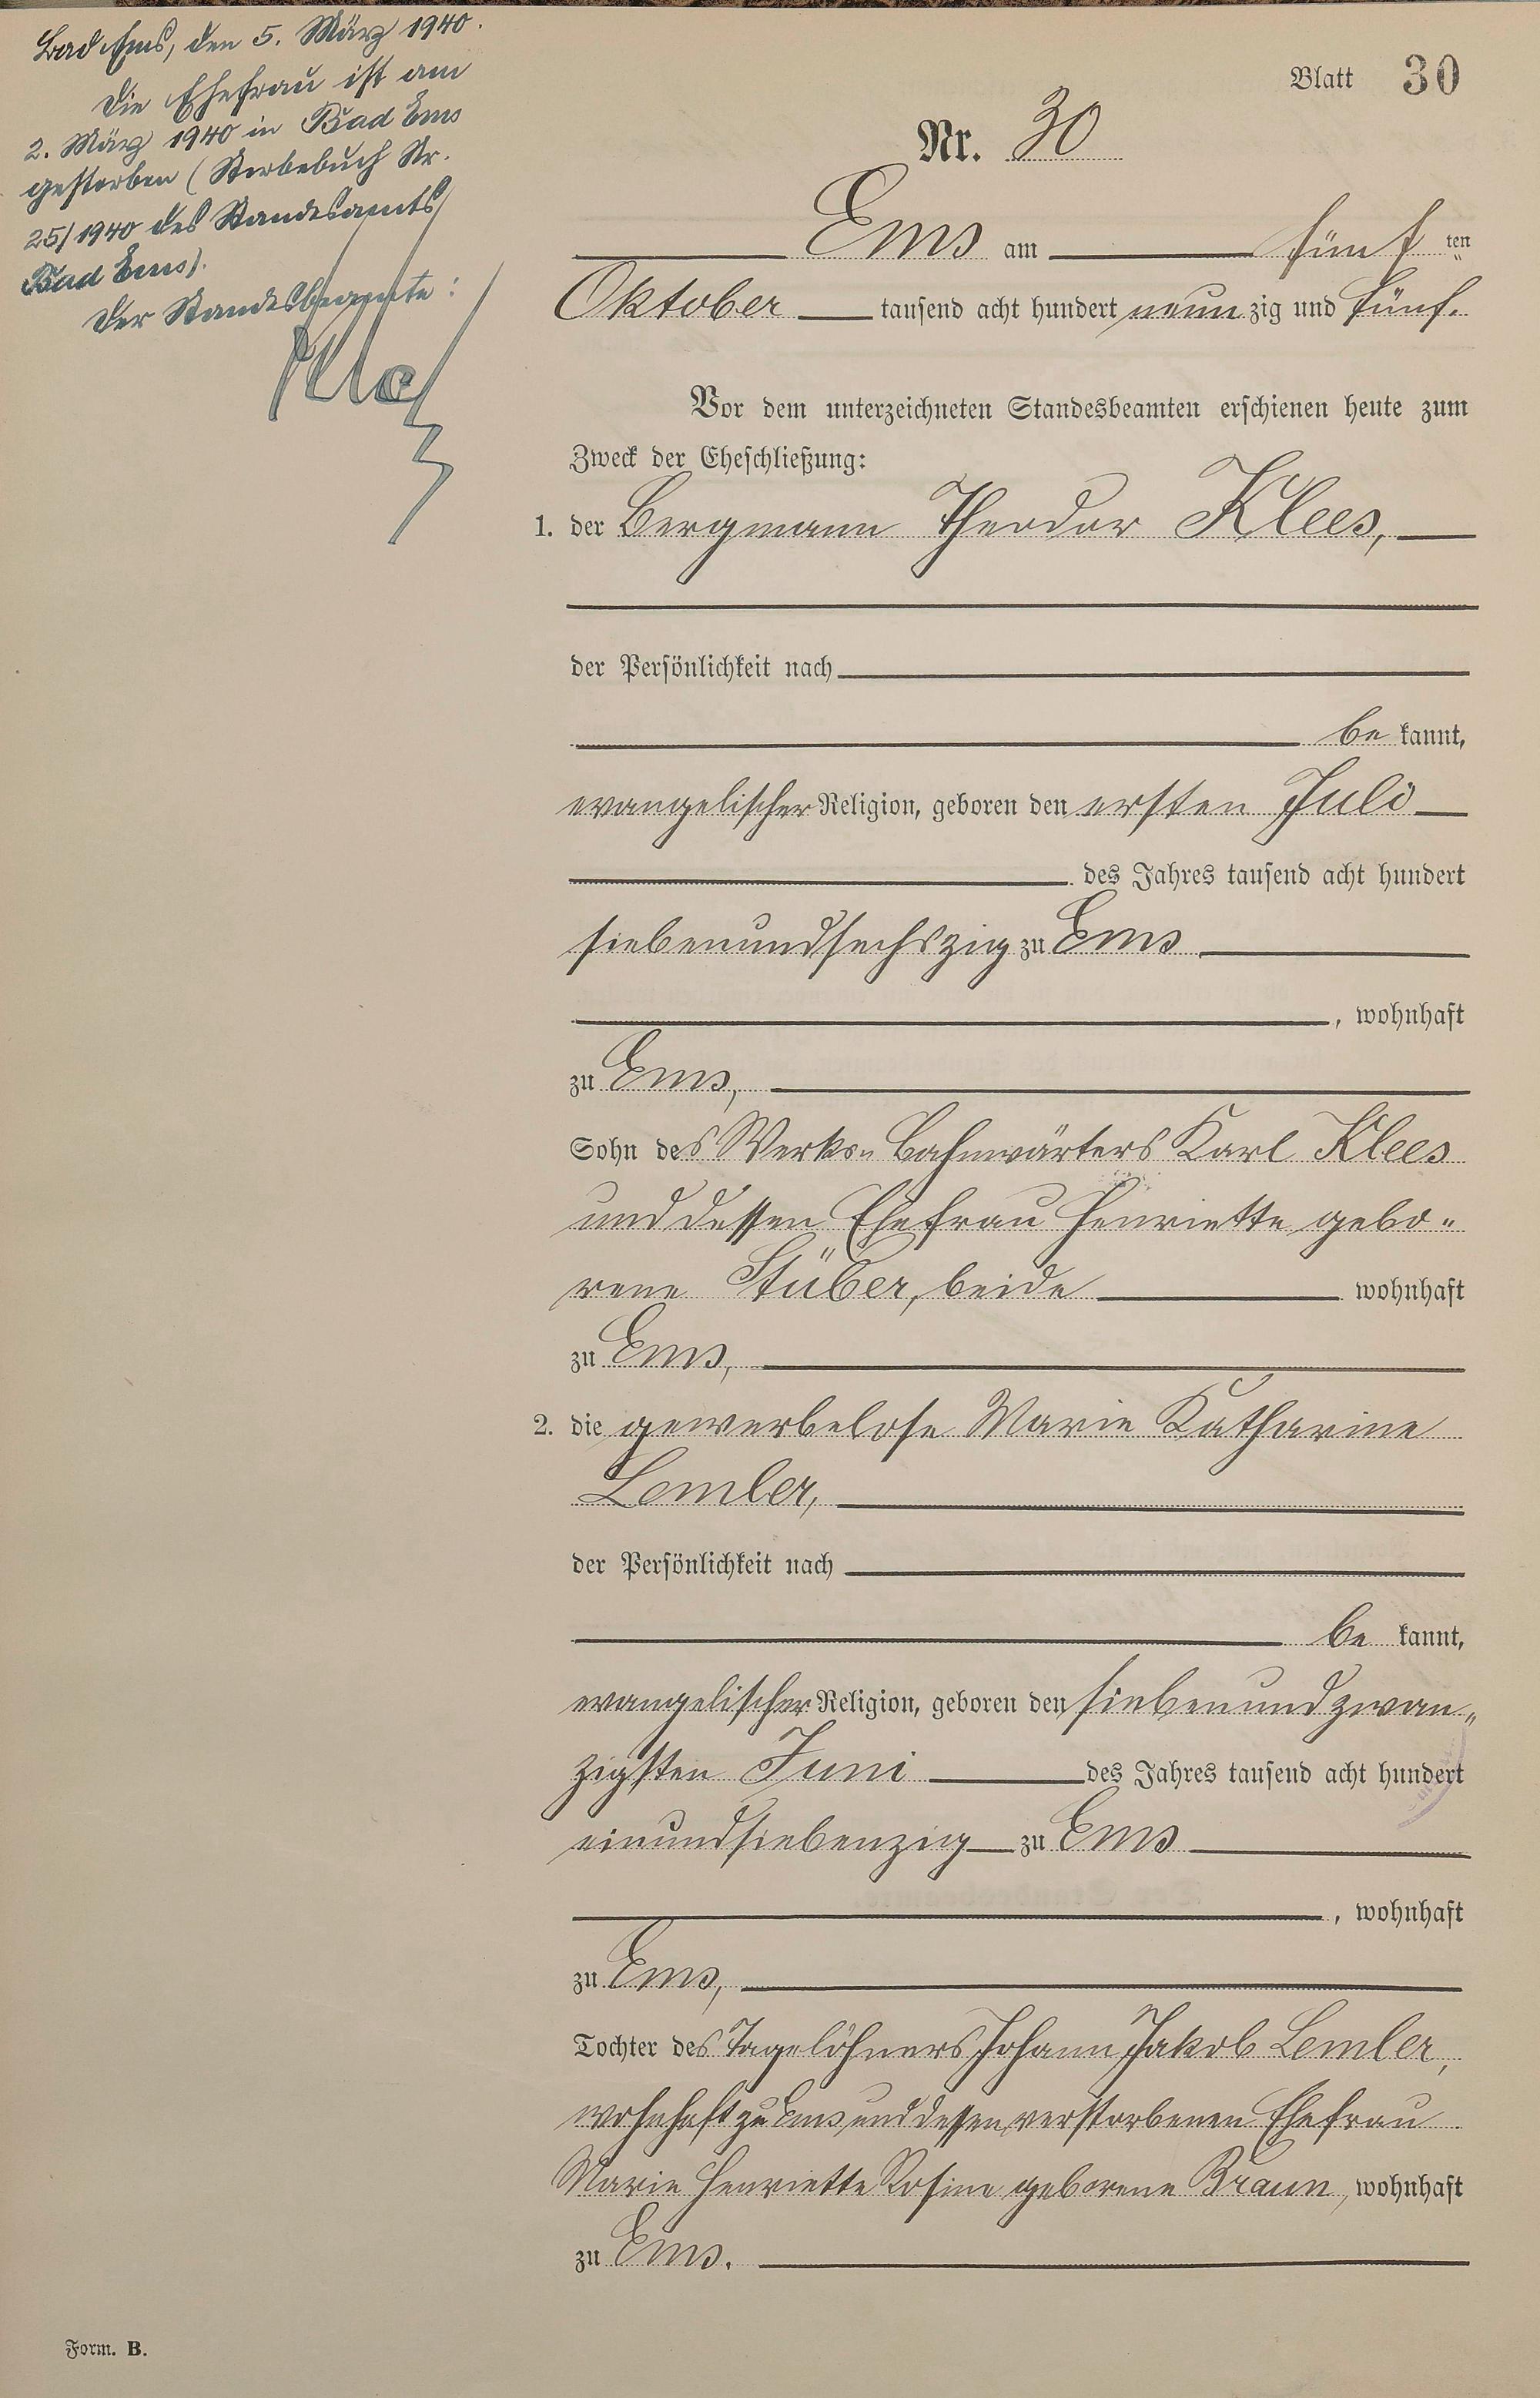 Bad Ems, den 5. März 1940.
Die Ehefrau ist am
2. März 1940 in Bad Ems
gestorben (Sterbebuch Nr.
25/1940 des Standesamts
Bad Ems).
Der Standesbeamte:
Blatt 30
Nr. 30
Ems am fünf ten
Oktober tausend acht hundert neun zig und fünf.
Vor dem unterzeichneten Standesbeamten erschienen heute zum
Zweck der Eheschließung:
1. der Bergmann Theodor Klees,
der Persönlichkeit nach
be kannt,
evangelischer Religion, geboren den ersten Juli
des Jahres tausend acht hundert
siebenundsechszig zu Ems
, wohnhaft
zu Ems,
Sohn des Werks-Bahnwärters Karl Klees
und dessen Ehefrau Henriette gebo-
rene Stüber, beide wohnhaft
zu Ems,
2. die gewerbelose Marie Katharine
Lemler,
der Persönlichkeit nach
be kannt,
evangelischer Religion, geboren den siebenundzwan-
zigsten Juni des Jahres tausend acht hundert
einundsiebenzig zu Ems
, wohnhaft
zu Ems,
Tochter des Tagelöhners Johann Jakob Lemler,
wohnhaft zu Ems und dessen verstorbenen Ehefrau
Marie Henriette Rosine geborene Braun, wohnhaft
zu Ems.
Form. B.